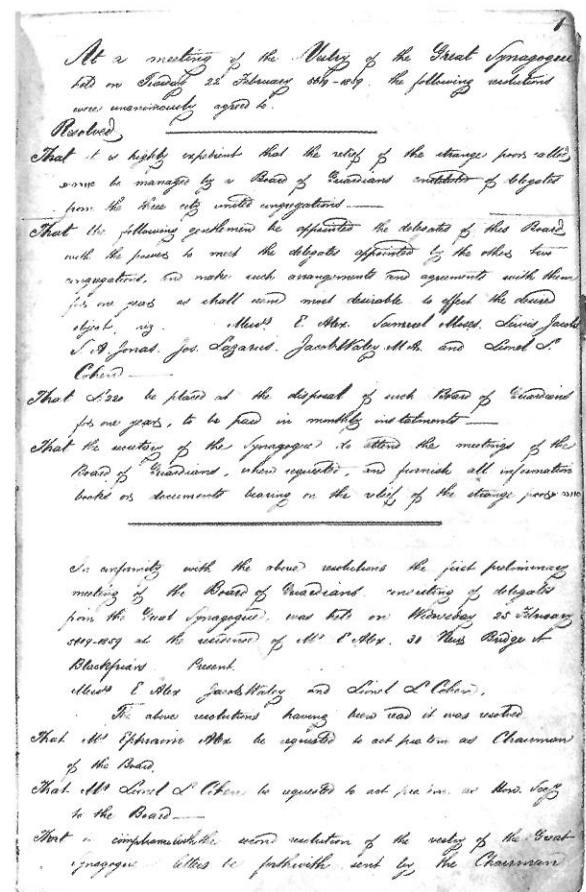 1
At a meeting of the Vestry of the Great Synagogue
held on Tuesday 22 February 5619-1859 the following resolutions
were unanimously agreed to.
Resolved
That it is highly expedient that the relief of the strange poor called
be managed by a Board of Guardians of delegates
from the three city united congregations —
That the following gentlemen be appointed the delegates of this Board
with the power to meet the delegates appointed by the other two
congregations, and make such arrangements and agreements with them
for one year as shall seem most desirable to effect the desired
object, viz. Messrs E. Alex. Samuel Moses. Lewis Jacobs
S. A. Jonas. Jos. Lazarus. Jacob Waley M.A. and Lionel L.
Cohen —
That £.220 be placed at the disposal of such Board of Guardians
for one year, to be paid in monthly instalments —
That the secretary of the Synagogue do attend the meetings of the
Board of Guardians, when requested, and furnish all information
books or documents bearing on the relief of the strange poor
In conformity with the above resolutions the first preliminary
meeting of the Board of Guardians, consisting of delegates
from the Great Synagogue, was held on Wednesday 23 February
5619-1859 at the residence of Mr E Alex. 30 New Bridge St
Blackfriars Present
Messrs E Alex Jacob Waley and Lionel L Cohen.
The above resolutions having been read it was resolved
That Mr Ephraim Alex be requested to act pro tem as Chairman
of the Board
That Mr Lionel L Cohen be requested to act pro tem. as Hon. Secy
to the Board —
That in compliance with the second resolution of the vestry of the Great
synagogue letters be forthwith sent by the Chairman